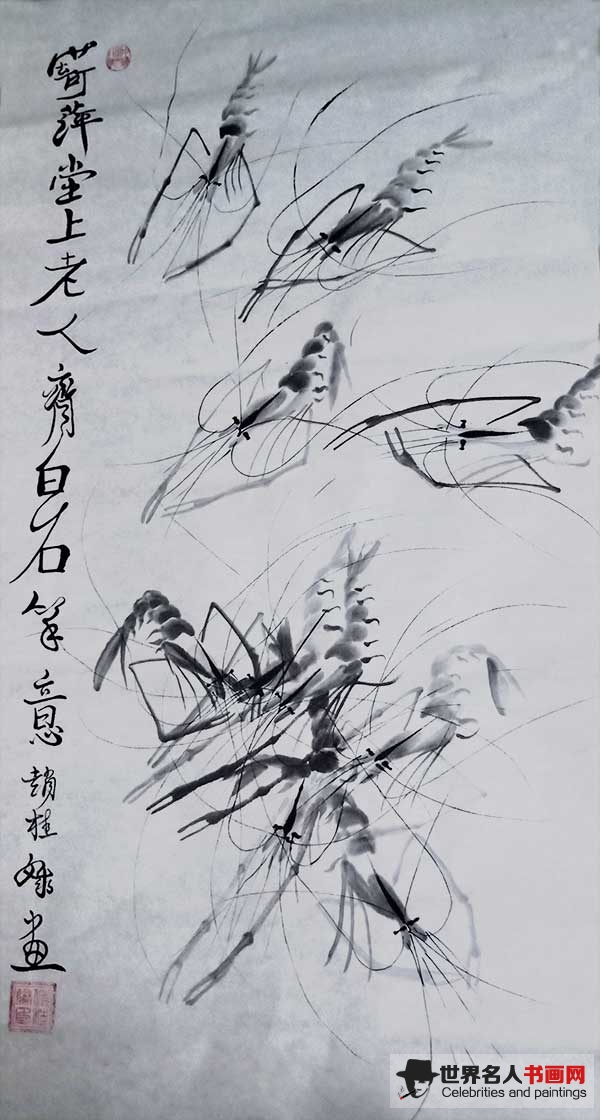 寄萍堂上老人齊白石筆意 趙桂 畫
世界名人书画网
Celebrities and paintings